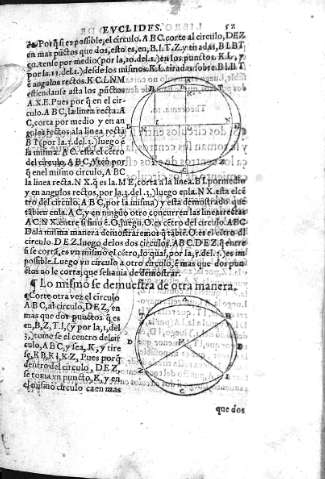 EVCLIDES. 52
Porq̃ si es possible, el circulo. A B C. corte al circulo, D E Z
en mas pũctos que dos, esto es, en, B. I. T. Z. y tiradas, B I. B T
cortense por medio (por la, 10. del. 1.) en los punctos. K. L, y
por la. 11. del. 1.) desde los mismos. K. L. tirados sobre. B I. B T
ẽ angulos rectos. K C. L N M
estiendanse asta los pũctos
A. X. E. Pues por q̃ en el cir
culo. A B C, la linea recta. A
C, corta por medio y en an
gulos rectos a la linea recta
B T (por la. 1. del. 3.) luego ẽ
la misma. A C. esta el cẽtro
del circulo. A B C, Y otro por
q̃ en el mismo circulo, A B C
la linea recta. N X. q̃ es la M E, corta a la linea. B I. por medio
y en angulos rectos, por la, 1. del. 3.) luego en la. N X. esta el cẽ
tro del circulo. A B C, por la misma) y esta demostrado que
tãbien en la. A C; y en ningũo otro concurren las lineas rectas
A C. N X. entre si sino ẽ. O, luego. O. es cẽtro del circulo. A B C
De la misma manera demostraremos q̃ tãbiẽ. O es el cẽtro del
circulo. D E Z. luego de los dos circulos. A B C. D E Z. q̃ entre
si se cortã, es vn mismo el cẽtro, lo qual, por la, 5. del. 3. es im
possible. Luego vn circulo a otro circulo, ẽ mas que dos pun
ctos no le corta, que se hauia de demostrar.
¶ Lo mismo se demuestra de otra manera.
Corte otra vez el circulo
A B C, al circulo, D E Z, en
mas que dos punctos q̃ es
en, B, Z, T. I, (y por la, 1, del
3,) tome se el centro del cir
culo, A B C, y sea, K, y tire
se, K B, K I, K Z, Pues por q̃
dentro del circulo, D E Z,
se toma vn puncto, K, y en
el mismo circulo caen mas
que dos